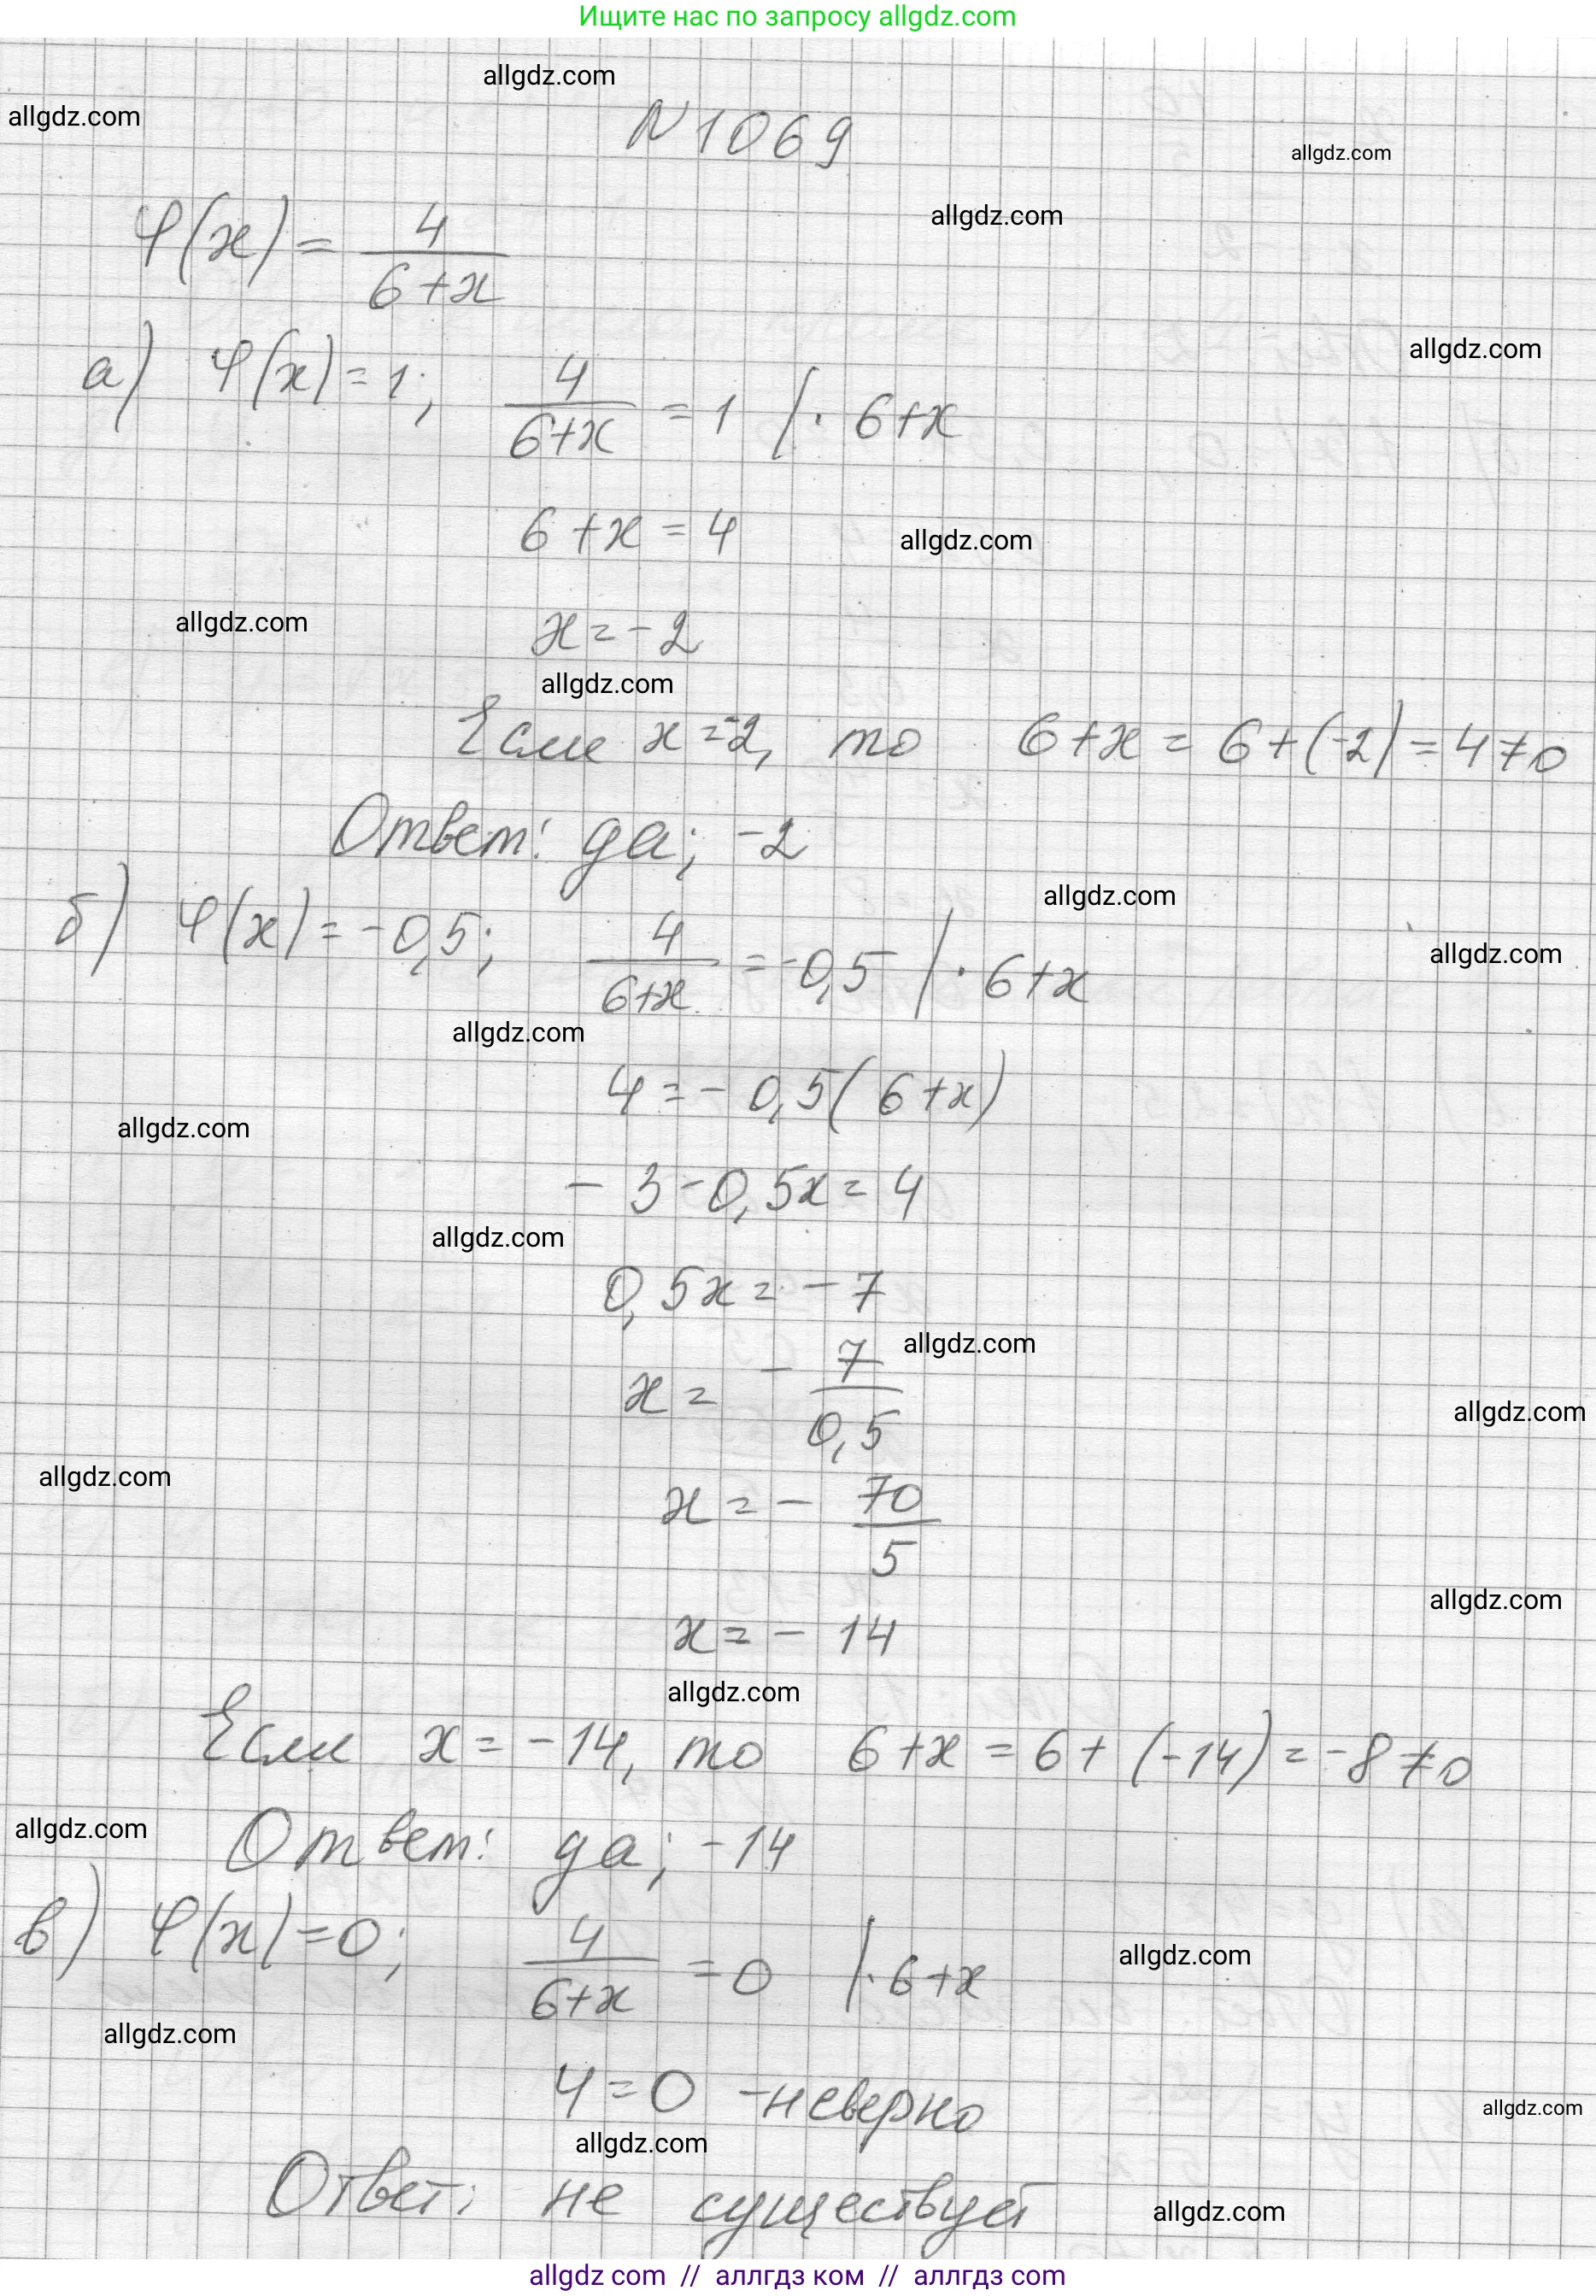 Ищите нас по запросу allgdz.com
allgdz.com
allgdz.com
N 1069
allgdz.com
allgdz.com
φ(x) = 4/(6+x)
allgdz.com
а) φ(x) = 1; 4/(6+x) = 1 | · 6+x
6+x = 4
allgdz.com
allgdz.com
x = -2
allgdz.com
Если x = -2, то 6+x = 6+(-2) = 4 ≠ 0
Ответ: да; -2
allgdz.com
б) φ(x) = -0,5; 4/(6+x) = -0,5 | · 6+x
allgdz.com
allgdz.com
4 = - 0,5(6+x)
allgdz.com
- 3 - 0,5x = 4
allgdz.com
0,5x = - 7
allgdz.com
x = - 7/0,5
allgdz.com
allgdz.com
x = - 70/5
allgdz.com
x = - 14
allgdz.com
Если x = -14, то 6+x = 6+(-14) = -8 ≠ 0
allgdz.com
Ответ: да; -14
в) φ(x) = 0; 4/(6+x) = 0 | · 6+x
allgdz.com
allgdz.com
4 = 0 - неверно
allgdz.com
allgdz.com
Ответ: не существует
allgdz.com
allgdz com // аллгдз ком // аллгдз com